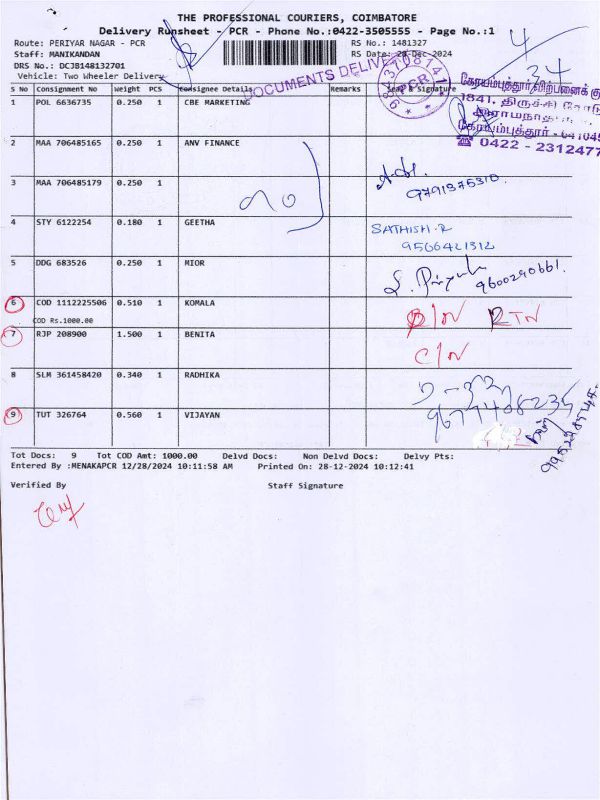 THE PROFESSIONAL COURIERS, COIMBATORE
Delivery Runsheet - PCR - Phone No.:0422-3505555 - Page No.:1
Route: PERIYAR NAGAR - PCR RS No.: 1481327
Staff: MANIKANDAN RS Date: 28-Dec-2024
DRS No.: DCJB148132701
Vehicle: Two Wheeler Delivery
DOCUMENTS DELIVE
PCR
4
34
கோயம்புத்தூர் விற்பனைக் கு
1841, திருச்சி ரோடு
கோயம்புத்தூர் - 641045
☎ 0422 - 2312477
S No Consignment No Weight PCS Consignee Details Remarks Seal & Signature
1 POL 6636735 0.250 1 CBE MARKETING
2 MAA 706485165 0.250 1 ANV FINANCE
3 MAA 706485179 0.250 1
9791375310.
4 STY 6122254 0.180 1 GEETHA
SATHISH.R
9566421312
5 DDG 683526 0.250 1 MIOR
9600290661.
6 COD 1112225506 0.510 1 KOMALA
COD Rs.1000.00
RTN
7 RJP 208900 1.500 1 BENITA
C/N
8 SLM 361458420 0.340 1 RADHIKA
9677408235
9 TUT 326764 0.560 1 VIJAYAN
Tot Docs: 9 Tot COD Amt: 1000.00 Delvd Docs: Non Delvd Docs: Delvy Pts:
Entered By :MENAKAPCR 12/28/2024 10:11:58 AM Printed On: 28-12-2024 10:12:41
Verified By Staff Signature